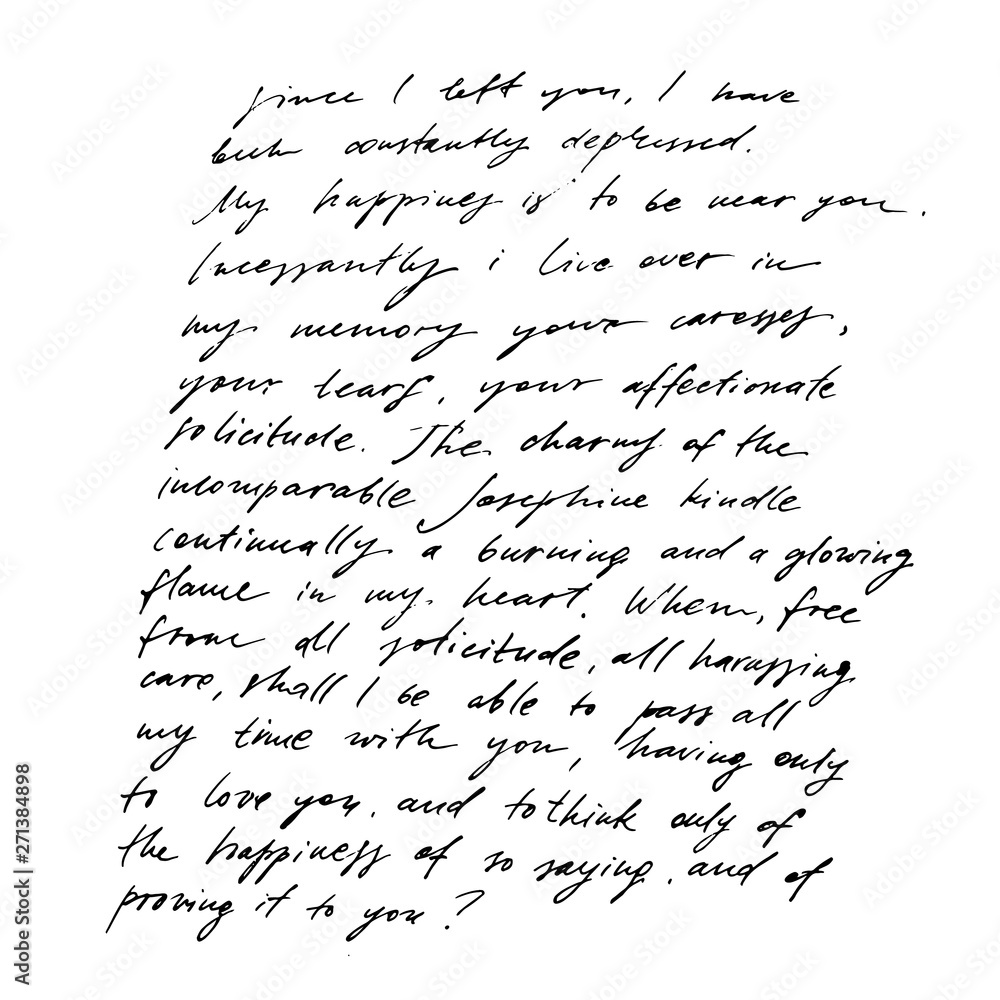 since I left you, I have
been constantly depressed.
My happines is to be near you.
Incessantly i live over in
my memory your caresses,
your tears, your affectionate
solicitude. The charms of the
incomparable Josephine kindle
continually a burning and a glowing
flame in my heart. When, free
from all solicitude, all harassing
care, shall I be able to pass all
my time with you, having only
to love you, and to think only of
the happiness of so saying, and of
proving it to you?
Adobe Stock | #271384898